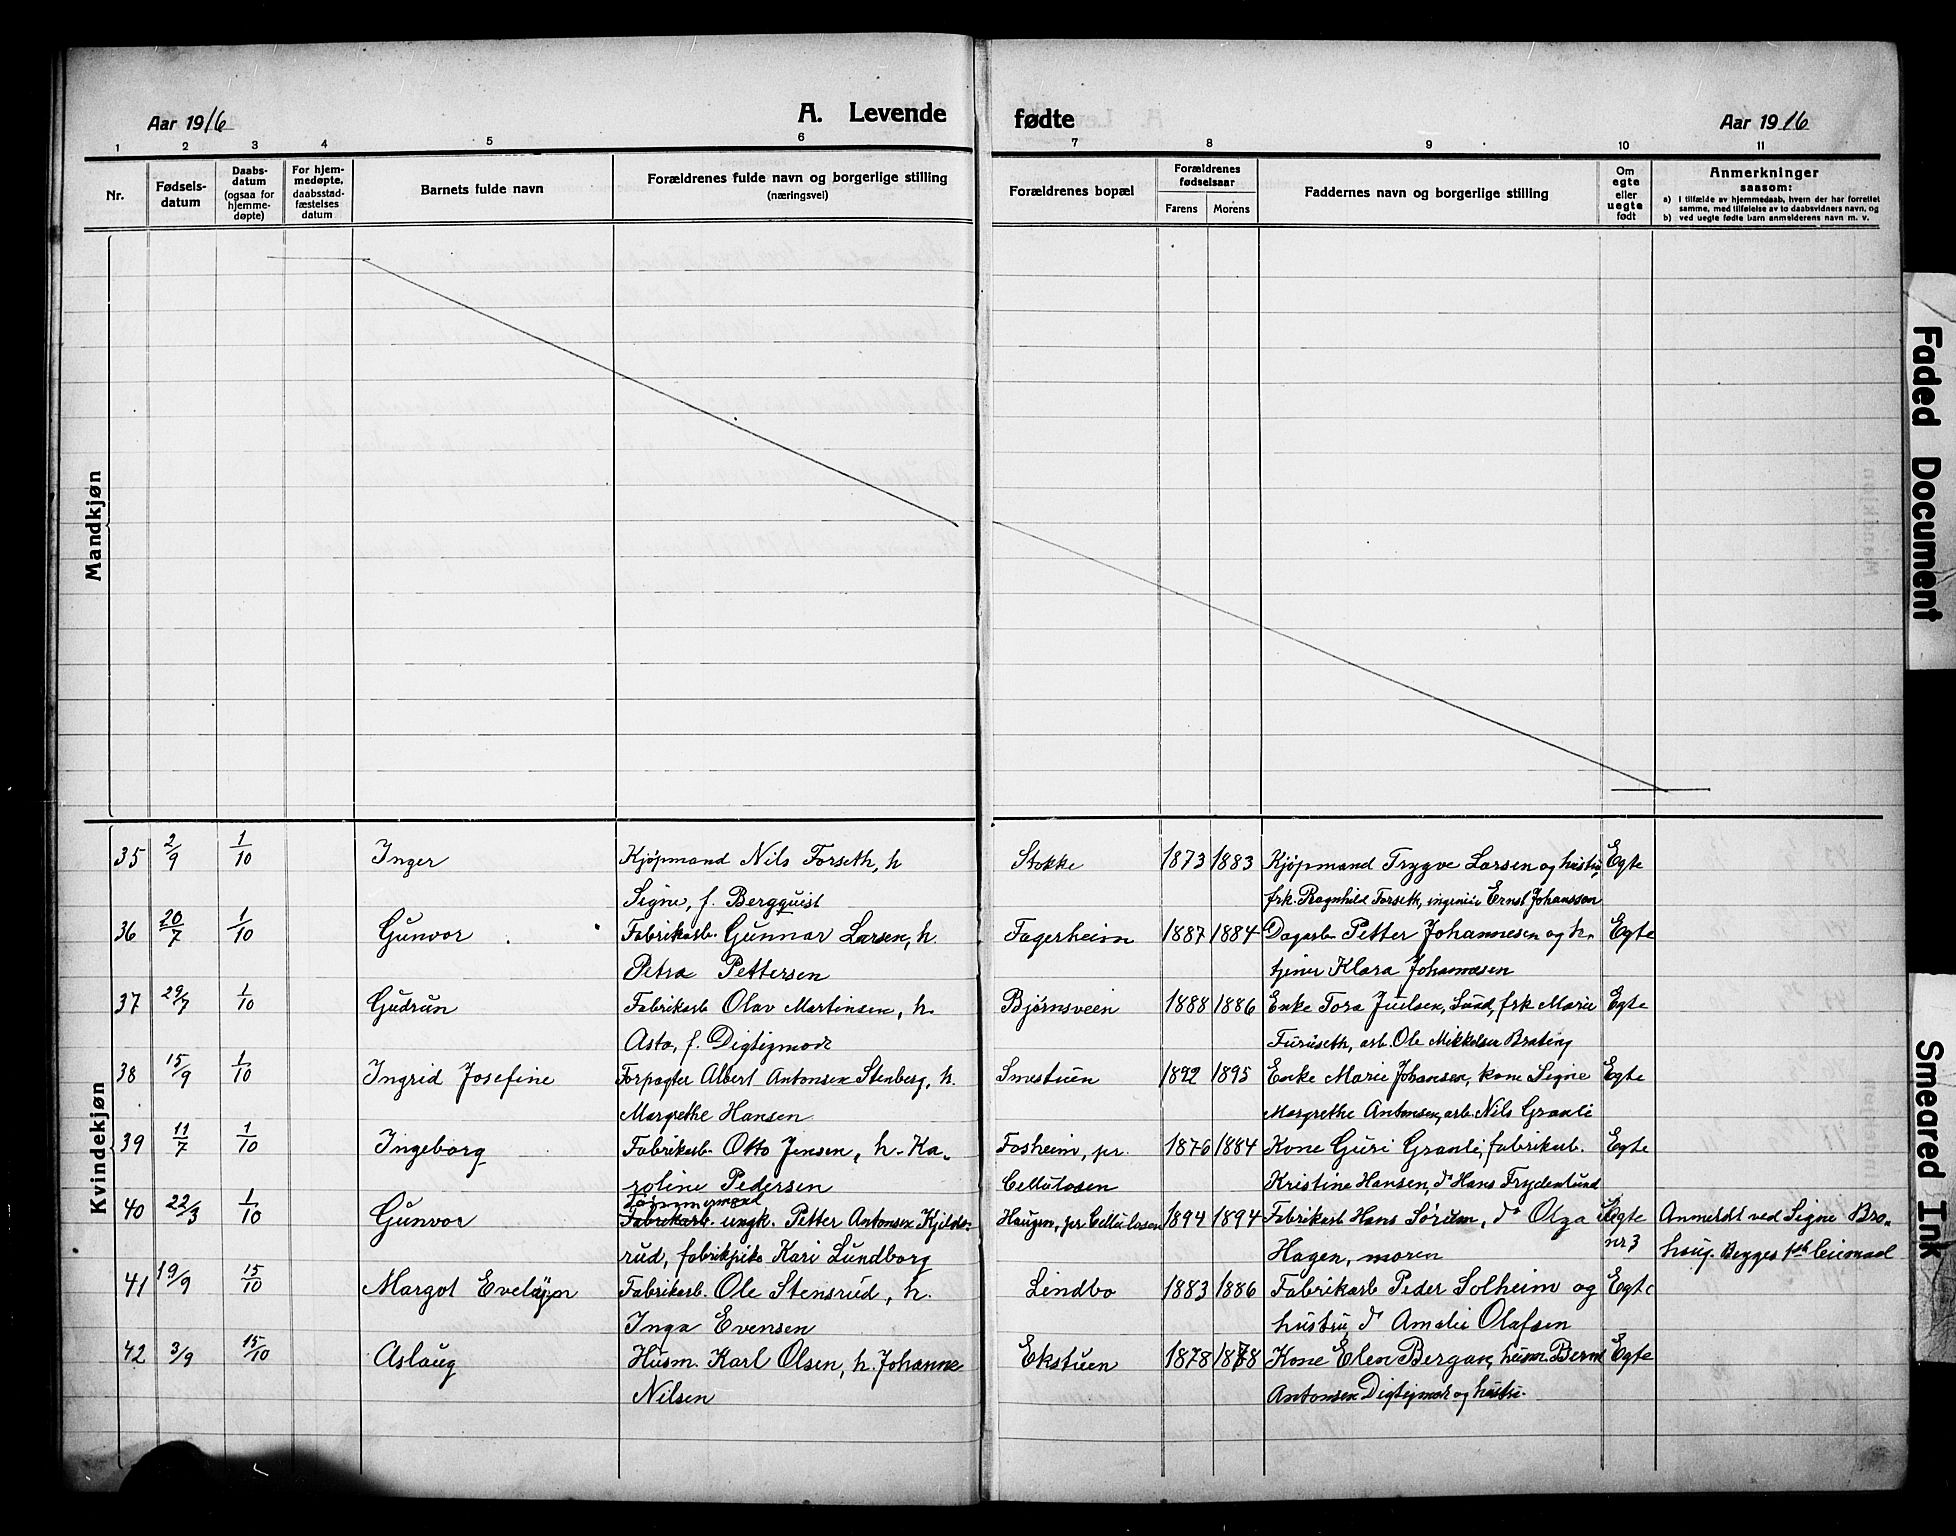 Aar 1916
A. Levende
fødte
Aar 1916
1 2 3 4 5 6 7 8 9 10 11
Nr.
Fødsels-
datum
Daabs-
datum
(ogsaa for
hjemme-
døpte)
For hjem-
medøpte,
daabsstad-
fæstelses
datum
Barnets fulde navn
Forældrenes fulde navn og borgerlige stilling
(næringsvei)
Forældrenes bopæl
Forældrenes
fødselsaar
Farens Morens
Faddernes navn og borgerlige stilling
Om
egte
eller
uegte
født
Anmerkninger
saasom:
a) i tilfælde av hjemmedaab, hvem der har forrettet
samme, med tilføielse av to daabsvidners navn, og
b) ved uegte fødte barn anmelderens navn m. v.
Mandkjøn
Kvindekjøn
35 2/9 1/10 Inger Kjøpmand Nils Forseth, h. Stokke 1873 1883 Kjøpmand Trygve Larsen og hustru, Egte
Signe, f. Bergquist frk. Ragnhild Forseth, ingeniør Ernst Johansson
36 20/7 1/10 Gunvor Fabrikarb. Gunnar Larsen, h. Fagerheim 1887 1884 Dagarb. Petter Johannesen og h. Egte
Petra Pettersen tjener Klara Johannesen
37 29/7 1/10 Gudrun Fabrikarb Olav Martinsen, h. Bjørnsveen 1888 1886 Enke Tora Juelsen, Lund, frk Marie Egte
Asta, f. Digtigmode Furuseth, arb. Ole Mikkelsen Brating
38 15/9 1/10 Ingrid Josefine Forpagter Albert Antonsen Stenberg, h. Smestuen 1892 1895 Enke Marie Johansen, kone Signe Egte
Margrethe Hansen Margrethe Antonsen, arb. Nils Granli
39 11/7 1/10 Ingeborg Fabrikarb. Otto Jensen, h. Ka- Fosheim, pr. 1876 1884 Kone Guri Granli, fabrikarb. Egte
roline Pedersen Cellulosen Kristine Hansen, do Hans Frydenlund
Tømmermand
40 22/3 1/10 Gunvor Fabrikarb. ungk. Petter Antonsen Kjilds- Haugen, pr Cellulosen 1894 1894 Fabrikarb Hans Sørum, do Olga Uegte Anmeldt ved Signe Bro-
rud, fabrikpike Kari Lundborg Hagen, moren nr 3 haug. Begges 1ste leiermaal
41 19/9 15/10 Margot Evelyn Fabrikarb. Ole Stensrud, h. Lindbo 1883 1886 Fabrikarb Peder Solheim og Egte
Inga Evensen hustru, do Amalie Olafsen
42 3/9 15/10 Aslaug Husm. Karl Olsen, h. Johanne Ekstuen 1878 1878 Kone Elen Bergan, husm. Bernt Egte
Nilsen Antonsen Digtigmode og hustru.
Faded Document
Smeared Ink